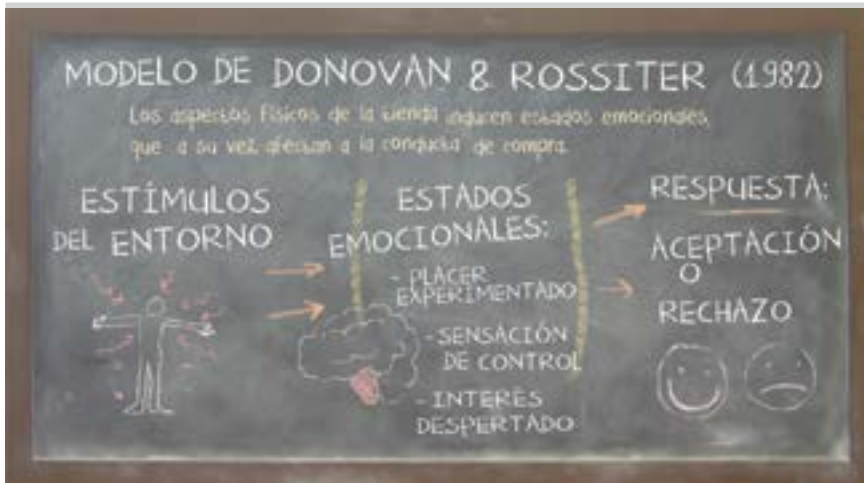 MODELO DE DONOVAN & ROSSITER (1982)
Los aspectos físicos de la tienda inducen estados emocionales,
que a su vez afectan a la conducta de compra.
ESTÍMULOS
DEL ENTORNO
ESTADOS
EMOCIONALES:
- PLACER
EXPERIMENTADO
- SENSACIÓN
DE CONTROL
- INTERÉS
DESPERTADO
RESPUESTA:
ACEPTACIÓN
O
RECHAZO